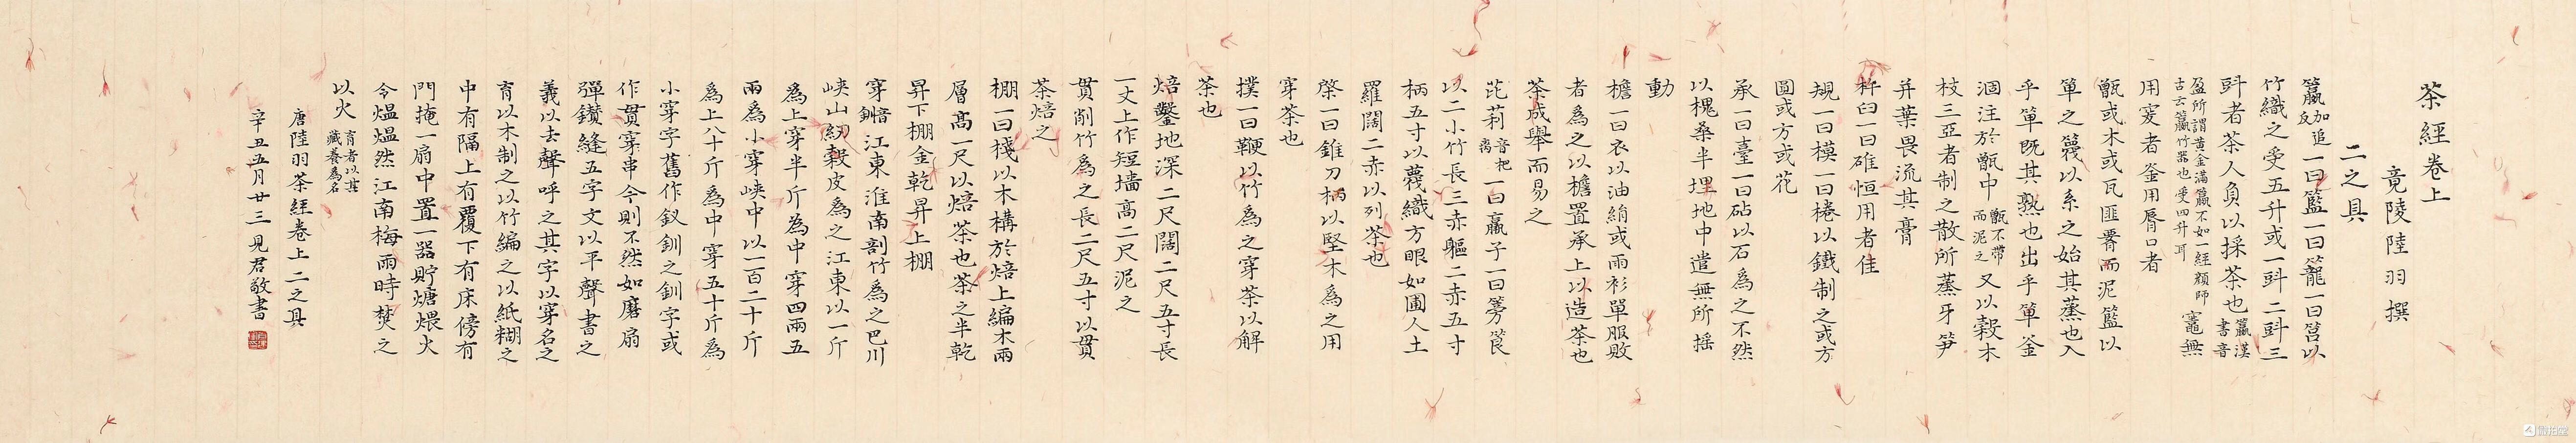 茶經卷上
竟陵陸羽撰
二之具
籝加追反一曰籃一曰籠一曰筥以
竹織之受五升或一㪷二㪷三
㪷者茶人負以採茶也籝漢書音
盈所謂黃金滿籝不如一經顏師古云籝竹器也受四升耳竈無
用窔者釜用脣口者
甑或木或瓦匪㬱而泥籃以
箄之篾以系之始其蒸也入
乎箄既其熟也出乎箄釜
涸注於甑中甑不帶而泥之又以榖木
枝三亞者制之散所蒸牙笋
并葉畏流其膏
杵臼一曰碓恒用者佳
規一曰模一曰棬以鐵制之或方
圓或方或花
承一曰臺一曰砧以石為之不然
以槐桑半埋地中遣無所搖
動
檐一曰衣以油絹或雨衫單服敗
者為之以檐置承上以造茶也
茶成舉而易之
芘莉音杷离一曰羸子一曰篣筤
以二小竹長三赤軀二赤五寸
柄五寸以篾織方眼如圃人土
羅闊二赤以列茶也
棨一曰錐刀柄以堅木為之用
穿茶也
撲一曰鞭以竹為之穿茶以解
茶也
焙鑿地深二尺闊二尺五寸長
一丈上作短墻高二尺泥之
貫削竹為之長二尺五寸以貫
茶焙之
棚一曰棧以木構於焙上編木兩
層高一尺以焙茶也茶之半乾
昇下棚全乾昇上棚
穿音釧江東淮南剖竹為之巴川
峽山紉榖皮為之江東以一斤
為上穿半斤為中穿四兩五
兩為小穿峽中以一百二十斤
為上八十斤為中穿五十斤為
小穿字舊作釵釧之釧字或
作貫穿串今則不然如磨扇
彈鑽縫五字文以平聲書之
義以去聲呼之其字以穿名之
育以木制之以竹編之以紙糊之
中有隔上有覆下有床傍有
門掩一扇中置一器貯煻煨火
令熅熅然江南梅雨時焚之
以火育者以其藏養為名
唐陸羽茶經卷上二之具
辛丑五月廿三見君敬書